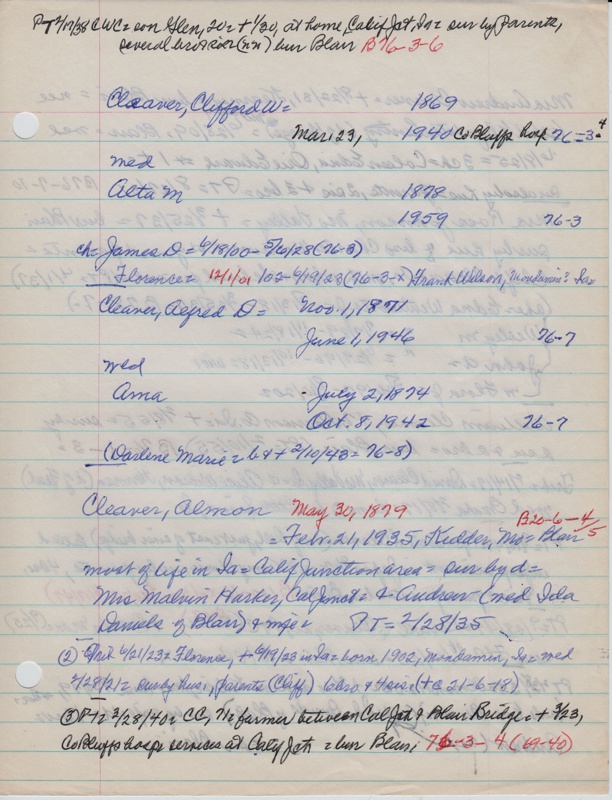 PT 2/17/38 CWC = son Glen, 20 = + 1/30, at home, Calif Jct, Ia = sur by parents,
several bro & sisr (nn) bur Blair B76-3-6
Cleaver, Clifford W = 1869
Mar. 23, 1940 Co Bluffs hosp 76=3-4
med
Alta M 1878
1959 76-3
ch = James D = 6/18/00 - 5/6/28 (76-3)
Florence = 12/1/01 /02 - 6/19/23 (76-3-x) Frank Wilson, Mondamin? Ia
Cleaver, Alfred D = Nov. 1, 1871
June 1, 1946 76-7
med
Ama July 2, 1874
Oct. 8, 1942 76-7
(Darlene Marie = b & + 2/10/43 = 76-8)
Cleaver, Almon May 30, 1879 B20-6-4/5
= Febr. 21, 1935, Kidder, Mo = Blair
most of life in Ia = Calif Junction area = sur by d =
Mrs Malvin Harker, Cal Junct = & Andrew (med Ida
Daniels of Blair) & PT = 2/28/35
(2) 6/21/23 = Florence, + 6/19/23 in Ia = born 1902, Mondamin, Ia = med
2/28/21 = sur by hus, parents (Cliff) 6 bro & 4 sis. (+c 21-6-18)
(3) PT = 3/28/40 = CC, 71 = farmer between Cal Jct & Blair Bridge = + 3/23,
Co Bluffs hosp services at Calif Jct = bur Blair; 76-3-4 (69-40)